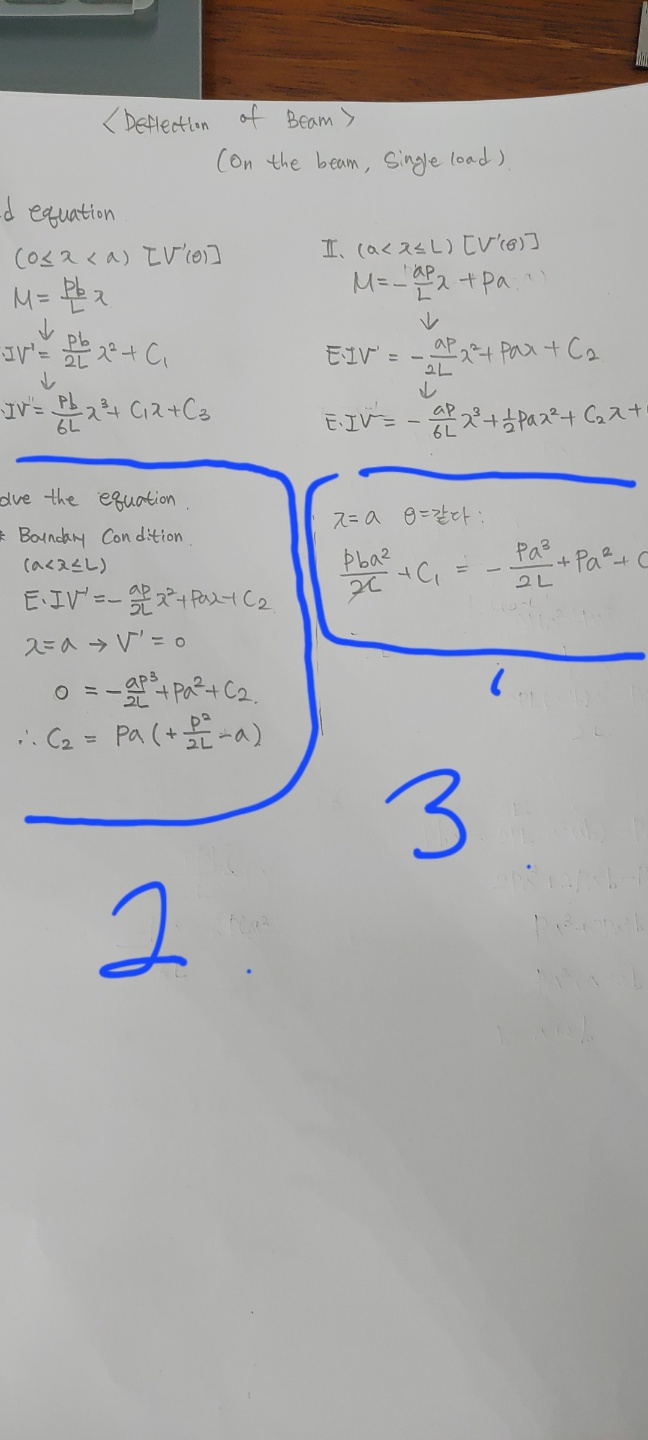 <Deflection of Beam>
(On the beam, Single load)
d equation
(0≤x<a) [V'(θ)]
M = Pb/L x
↓
IV' = Pb/2L x² + C₁
↓
IV = Pb/6L x³ + C₁x + C₃
II. (a<x≤L) [V'(θ)]
M = -aP/L x + Pa
↓
E·IV' = -aP/2L x² + Pax + C₂
↓
E·IV = -aP/6L x³ + 1/2 Pax² + C₂x +
olve the equation.
* Boundary Condition
(a<x≤L)
E·IV' = -aP/2L x² + Pax + C₂
x=a → V' = 0
0 = -aP³/2L + Pa² + C₂.
∴ C₂ = Pa(+P²/2L - a)
2.
x=a θ=같다:
Pba²/2L + C₁ = -Pa³/2L + Pa² + C
3.